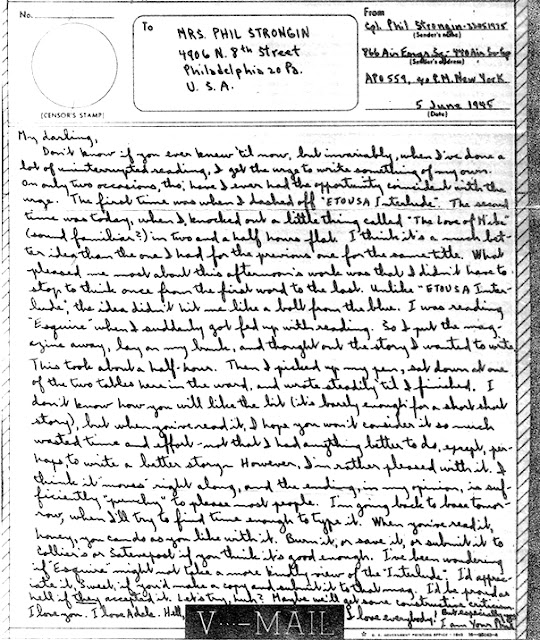 No.
(CENSOR'S STAMP)
To
MRS. PHIL STRONGIN
4906 N. 8th Street
Philadelphia 20 Pa.
U. S. A.
From
Cpl. Phil Strongin
(Sender's name)
(Sender's address)
APO 559, c/o P.M. New York
5 June 1945
(Date)
My darling,
Don't know if you ever knew 'til now, but invariably, when I've done a
lot of uninterrupted reading, I get the urge to write something of my own.
On only two occasions, tho', have I ever had the opportunity coincident with the
urge. The first time was when I dashed off "ETOUSA Interlude". The second
time was today, when I knocked out a little thing called "The Love of Mike"
(sound familiar?) in two and a half hours flat. I think it's a much bet-
ter idea than the one I had for the previous one for the same title. What
pleased me most about this afternoon's work was that I didn't have to
stop to think once from the first word to the last. Unlike "ETOUSA Inter-
lude", the idea didn't hit me like a bolt from the blue. I was reading
"Esquire" when I suddenly got fed up with reading. So I put the mag-
azine away, lay on my bunk, and thought out the story I wanted to write.
This took about a half-hour. Then I picked up my pen, sat down at one
of the two tables here in the ward, and wrote steadily 'til I finished. I
don't know how you will like the bit (it's barely enough for a short short
story), but when you've read it, I hope you won't consider it so much
wasted time and effort - not that I had anything better to do, except, per-
haps, to write a better story. However, I'm rather pleased with it. I
think it "moves" right along, and the ending, in my opinion, is suf-
ficiently "punchy" to please most people. I'm going back to base tomor-
row, when I'll try to find time enough to type it. When you've read it,
honey, you can do as you like with it. Burn it, or save it, or submit it to
Collier's or Satevepost if you think it's good enough. I've been wondering
if "Esquire" might not take a more kindly view of the "Interlude". I'd appre-
ciate it, Sweet, if you'd make a copy and submit it to that mag. I'd be proud as
hell if they accepted it. Let's try, huh? Maybe we'll get some constructive criticism.
I love you. I love Adele. Hell, I love everybody! But especially you
I am Your Phil
V···—MAIL
U. S. GOVERNMENT PRINTING OFFICE : 1943